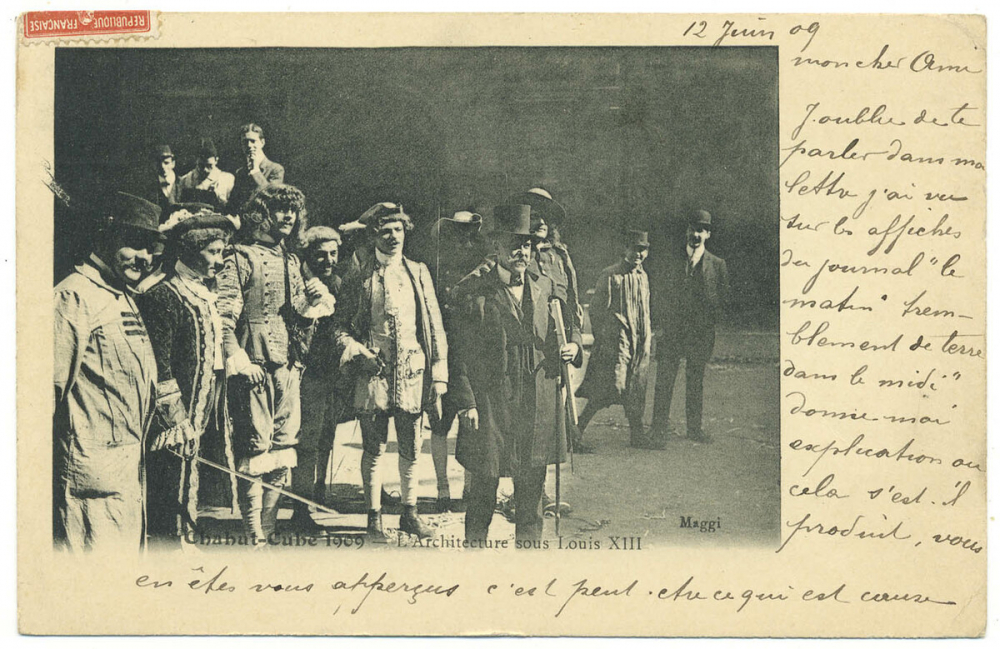 REPUBLIQUE FRANÇAISE
12 Juin 09
mon cher Ami
J'oublie de te
parler dans ma
lettre j'ai vu
sur les affiches
du journal "le
matin" trem-
blement de terre
dans le midi"
donne moi
explication ou
cela s'est-il
produit, vous
en êtes vous apperçus c'est peut-etre ce qui est cause
Chahut-Cube 1909 — L'Architecture sous Louis XIII
Maggi